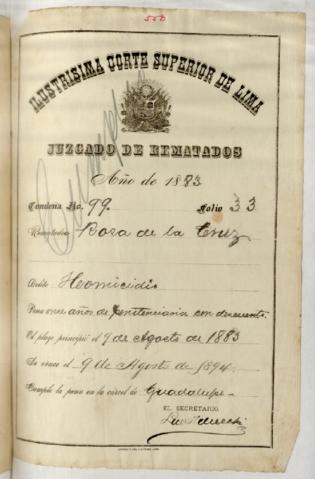 550
ILUSTRISIMA CORTE SUPERIOR DE LIMA
JUZGADO DE REMATADOS
Año de 1883
Condena No. 99. Folio 33
Rematado Rosa de la Cruz
Delito Heomicidio
Pena once años de penitenciaria con descuento
El plazo principió el 9 de Agosto de 1883
Se vence el 9 de Agosto de 1894
Cumple la pena en la cárcel de Guadalupe
EL SECRETARIO